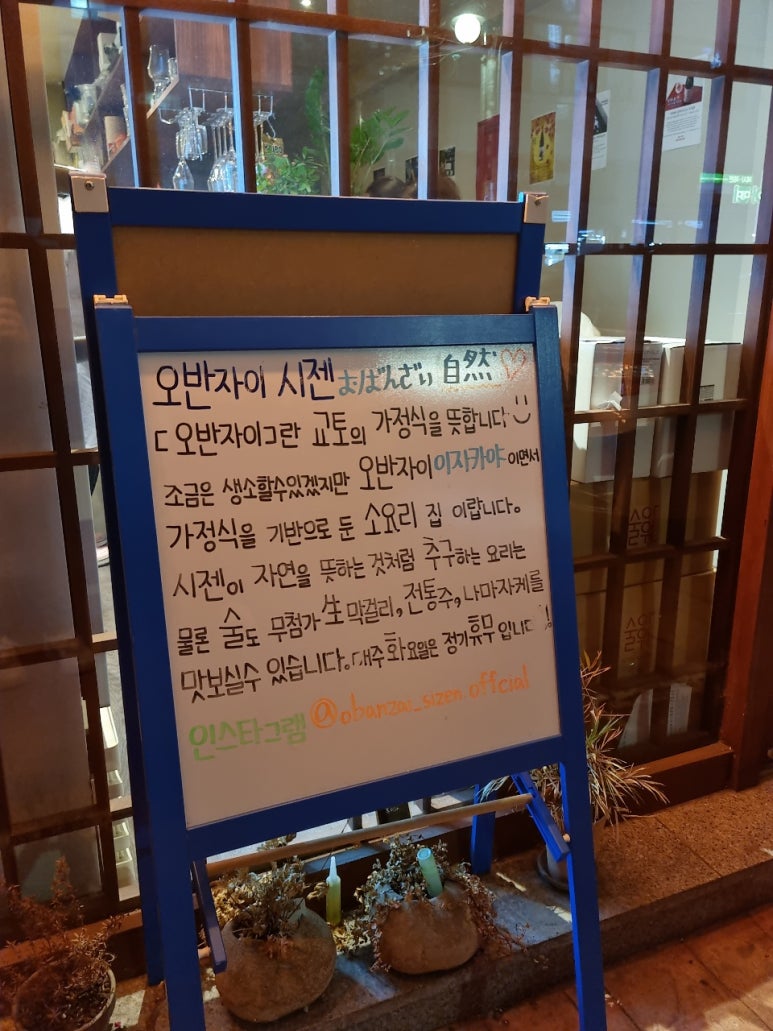 오반자이 시젠 おばんざい 自然♡
오반자이란 교토의 가정식을 뜻합니다
조금은 생소할수있겠지만 오반자이이자카야이면서
가정식을 기반으로 둔 소요리 집 이랍니다.
시젠이 자연을 뜻하는 것처럼 추구하는 요리는
물론 술도 무첨가 生막걸리, 전통주, 나마자케를
맛보실수 있습니다. 매주 화요일은 정기휴무 입니다!
인스타그램 @obanzai_sizen.offcial